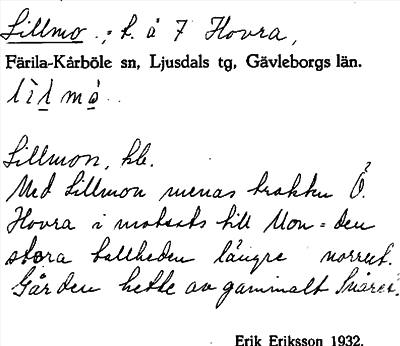 Lillmo, h. å 7 Hovra,
Färila-Kårböle sn, Ljusdals tg, Gävleborgs län.
lìlmȯ..
Lillmon, hb.
Med Lillmon menas trakten Ö.
Hovra i motsats till Mon = den
stora tallheden längre norrut.
Gården hette av gammalt
Erik Eriksson 1932.